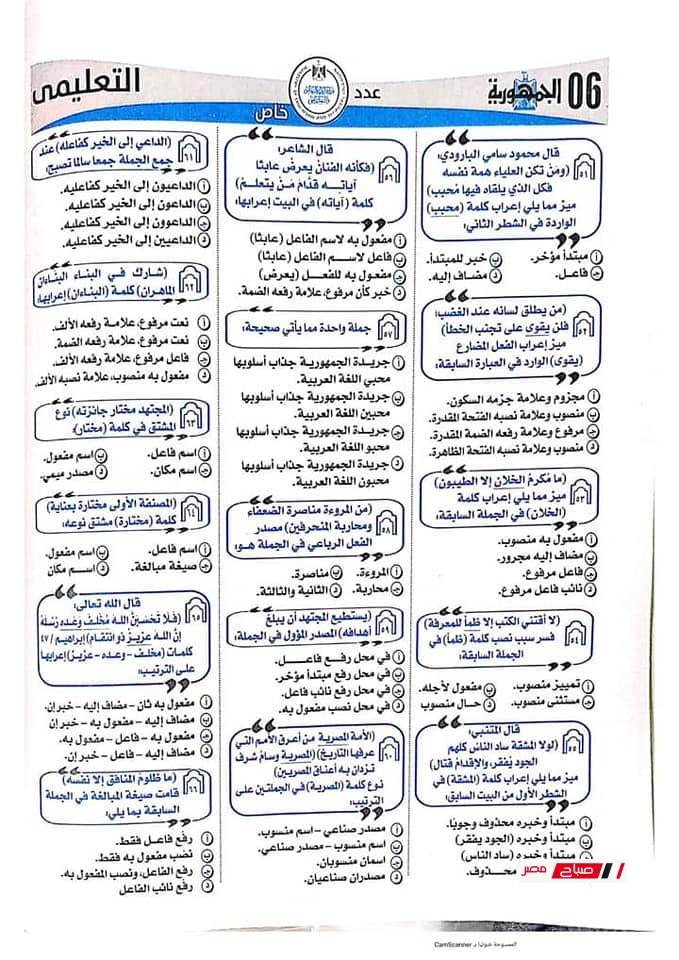 06 الجمهورية
عدد
خاص
التعليمى
٥١
قال محمود سامي البارودي:
(ومَنْ تكن العلياء همة نفسه
فكل الذي يلقاه فيها مُحبب)
ميز مما يلي إعراب كلمة (محبب)
الواردة في الشطر الثاني:
أ مبتدأ مؤخر.
ب خبر للمبتدأ.
ج فاعل.
د مضاف إليه.
٥٢
(من يطلق لسانه عند الغضب:
فلن يقوى على تجنب الخطأ)
ميز إعراب الفعل المضارع
(يقوى) الوارد في العبارة السابقة:
أ مجزوم وعلامة جزمه السكون.
ب منصوب وعلامة نصبه الفتحة المقدرة.
ج مرفوع وعلامة رفعه الضمة المقدرة.
د منصوب وعلامة نصبه الفتحة الظاهرة.
٥٣
(ما مُكرمُ الخلان إلا الطيبون)
ميز مما يلي إعراب كلمة
(الخلان) في الجملة السابقة:
أ مفعول به منصوب.
ب مضاف إليه مجرور.
ج فاعل مرفوع.
د نائب فاعل مرفوع.
٥٤
(لا أقتني الكتب إلا ظمأ للمعرفة)
فسر سبب نصب كلمة (ظمأ) في
الجملة السابقة:
أ تمييز منصوب.
ب مفعول لأجله.
ج مستثنى منصوب.
د حال منصوب
٥٥
قال المتنبي:
(لولا المشقة ساد الناس كلهم
الجود يُفقر، والإقدام قتال)
ميز مما يلي إعراب كلمة (المشقة) في
الشطر الأول من البيت السابق:
أ مبتدأ وخبره محذوف وجوبًا.
ب مبتدأ وخبره (الجود يفقر)
ج مبتدأ وخبره (ساد الناس)
محذوف.
صباح مصر
٥٦
قال الشاعر:
(فكأنه الفنانُ يعرضُ عابثًا
آياته قدَّام مَنْ يتعلمُ)
كلمة (آياته) في البيت إعرابها:
أ مفعول به لاسم الفاعل (عابثا)
ب فاعل لاسم الفاعل (عابثا)
ج مفعول به للفعل (يعرض)
د خبر كأن مرفوع، علامة رفعه الضمة.
٥٧
جملة واحدة مما يأتي صحيحة:
أ جريدة الجمهورية جذاب أسلوبها
محبي اللغة العربية.
ب جريدة الجمهورية جذاب أسلوبها
محبين اللغة العربية.
ج جريدة الجمهورية جذاب أسلوبها
محبو اللغة العربية.
د جريدة الجمهورية جذاب أسلوبها
محبون اللغة العربية.
٥٨
(من المروءة مناصرة الضعفاء
ومحاربة المنحرفين) مصدر
الفعل الرباعي في الجملة هو:
أ المروءة.
ب مناصرة.
ج محاربة.
د الثانية والثالثة.
٥٩
(يستطيع المجتهد أن يبلغ
أهدافه) المصدر المؤول في الجملة:
أ في محل رفع فاعل.
ب في محل رفع مبتدأ مؤخر.
ج في محل رفع نائب فاعل.
د في محل نصب مفعول به.
٦٠
(الأمة المصرية من أعرق الأمم التي
عرفها التاريخ) (المصرية وسام شرف
تزدان به أعناق المصريين)
نوع كلمة (المصرية) في الجملتين على
الترتيب:
أ مصدر صناعي – اسم منسوب.
ب اسم منسوب – مصدر صناعي.
ج اسمان منسوبان.
د مصدران صناعيان.
٦١
(الداعي إلى الخير كفاعله) عند
جمع الجملة جمعا سالما تصبح:
أ الداعيون إلى الخير كفاعليه.
ب الداعون إلى الخير كفاعليه.
ج الداعوون إلى الخير كفاعليه.
د الداعيين إلى الخير كفاعليه.
٦٢
(شارك في البناء البناءان
الماهران) كلمة (البناءان) إعرابها:
أ نعت مرفوع، علامة رفعه الألف.
ب نعت مرفوع، علامة رفعه الضمة.
ج فاعل مرفوع، علامة رفعه الألف.
د مفعول به منصوب، علامة نصبه الألف.
٦٣
(المجتهد مختار جائزته) نوع
المشتق في كلمة (مختار):
أ اسم فاعل.
ب اسم مفعول.
ج اسم مكان.
د مصدر ميمي.
٦٤
(المصنفة الأولى مختارة بعناية)
كلمة (مختارة) مشتق نوعه:
أ اسم فاعل.
ب اسم مفعول.
ج صيغة مبالغة.
د اسم مكان
٦٥
قال الله تعالى:
(فَلَا تَحْسَبَنَّ اللَّهَ مُخْلِفَ وَعْدِهِ رُسُلَهُ
إِنَّ اللَّهَ عَزِيزٌ ذُو انْتِقَامٍ) إبراهيم / ٤٧
كلمات (مخلف – وعده – عزيز) إعرابها
على الترتيب:
أ مفعول به ثان – مضاف إليه – خبر إن.
ب مضاف إليه – مفعول به – خبر إن
ج مفعول به – فاعل – مفعول به.
د مضاف إليه – فاعل – خبر إن.
٦٦
(ما ظلومٌ المنافق إلا نفسه)
قامت صيغة المبالغة في الجملة
السابقة بما يلي:
أ رفع فاعل فقط.
ب نصب مفعول به فقط.
ج رفع الفاعل، ونصب المفعول به.
د رفع نائب الفاعل
الممسوحة ضوئيا بـ CamScanner